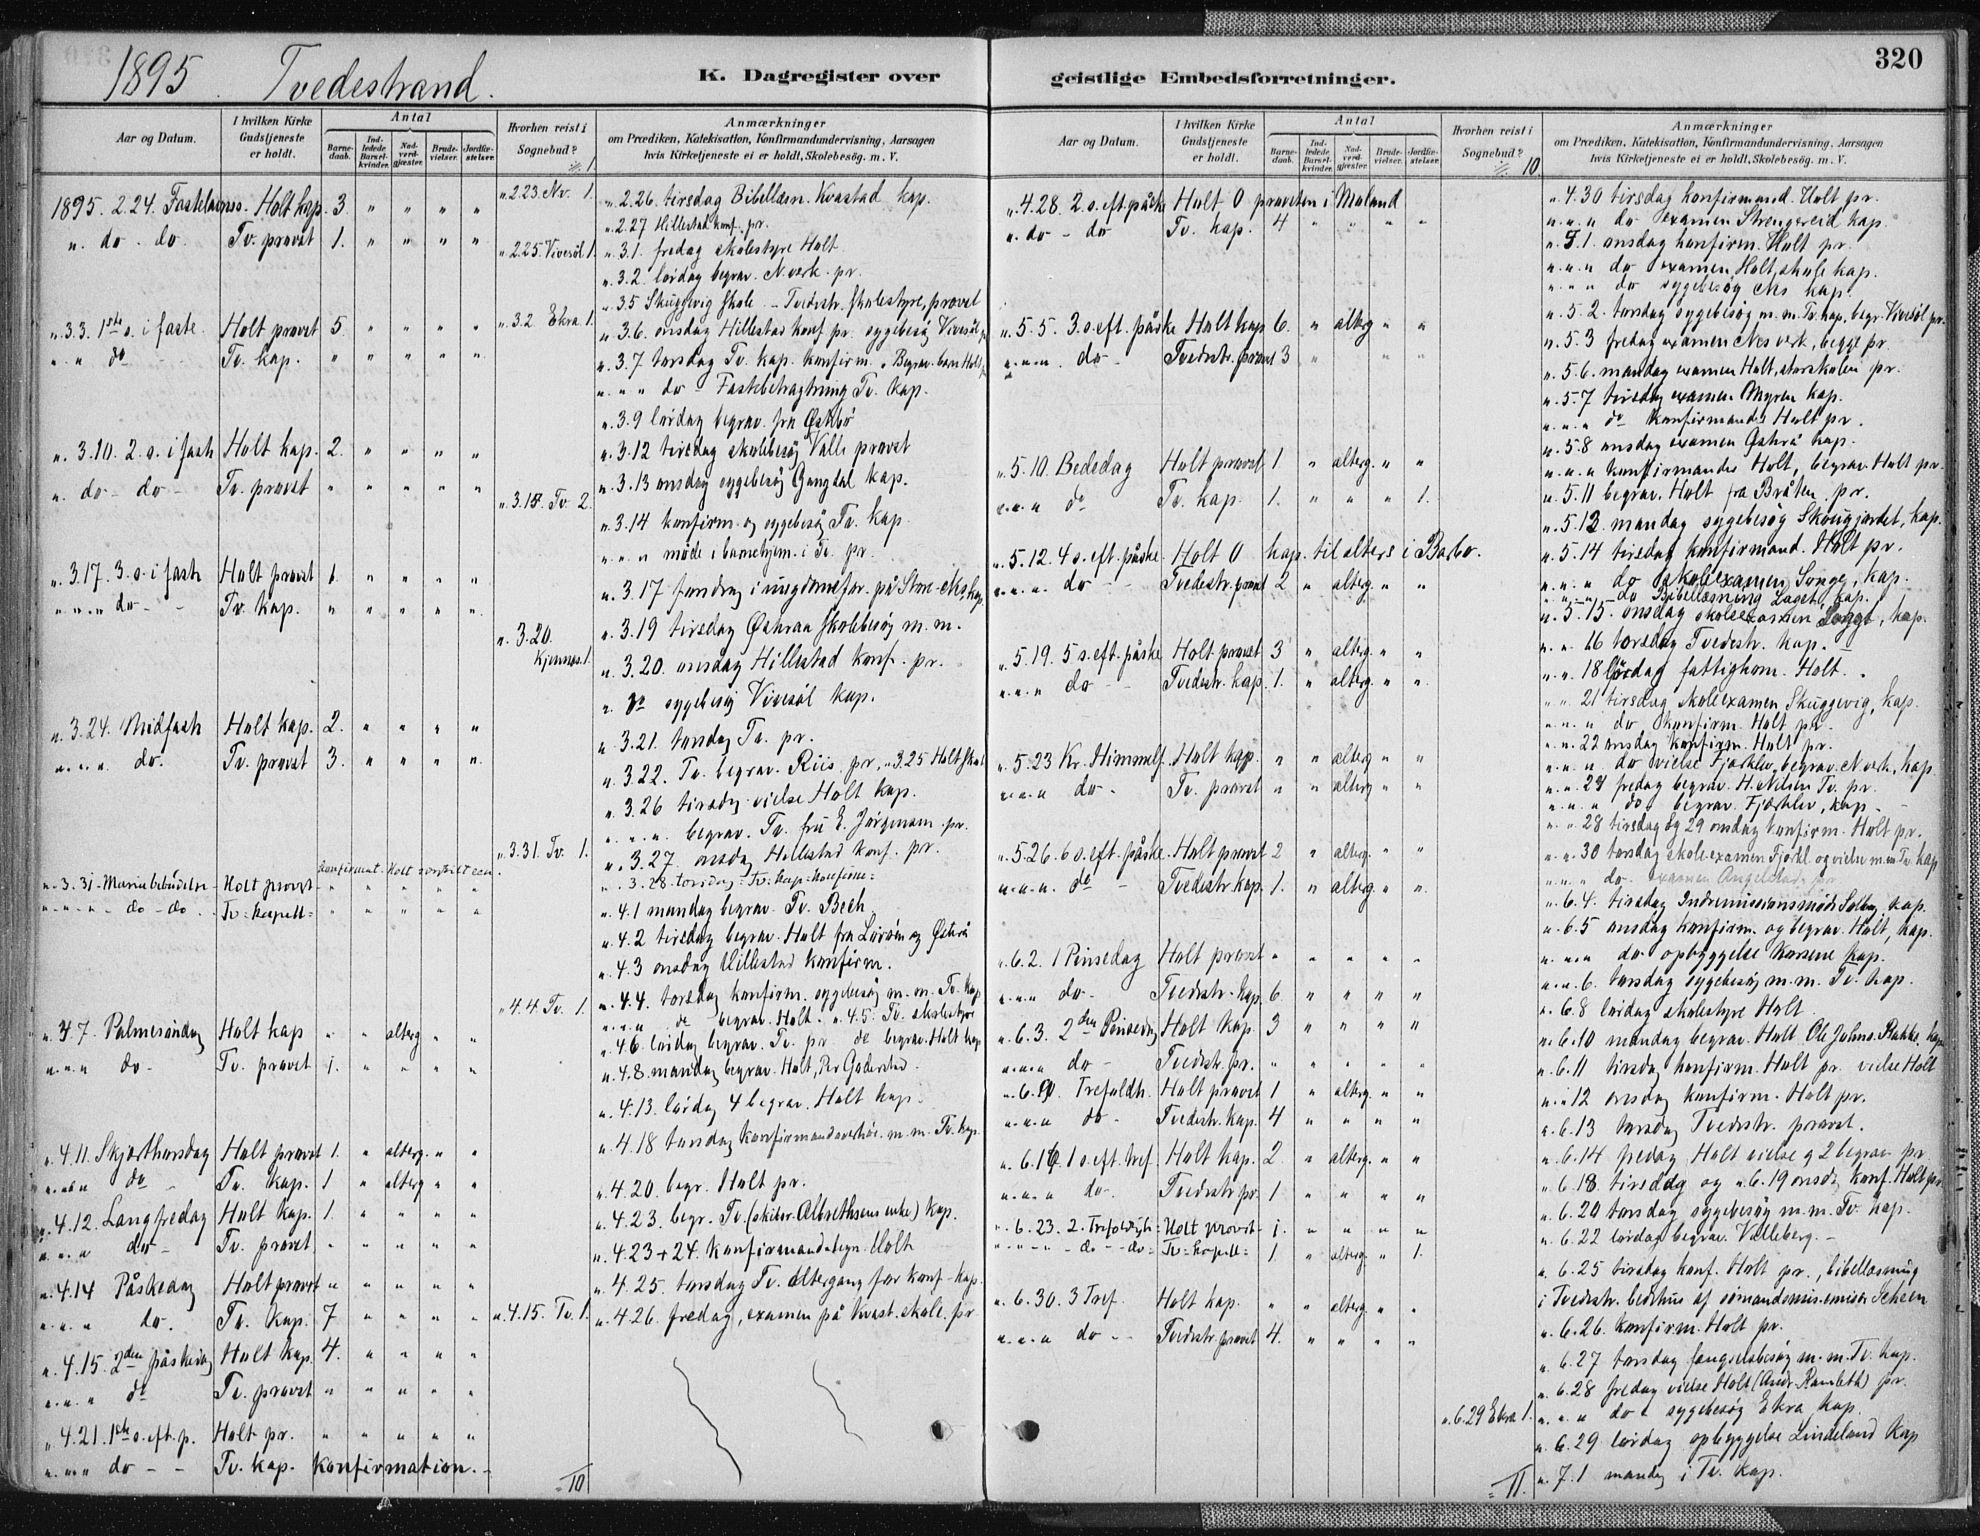 1895. Tvedestrand.
K. Dagregister over
Aar og Datum.
I hvilken Kirke Gudstjeneste er holdt.
Antal
Barnedaab.
Indledede Barselkvinder.
Nadverdgjester.
Brudevielser.
Jordfæstelser.
Hvorhen reist i Sognebud?
1.
Anmærkninger
om Prædiken, Katekisation, Konfirmandundervisning, Aarsagen
hvis Kirketjeneste ei er holdt, Skolebesög. m. V.
1895. 2.24. Fastelavnss. Holt kap. 3 " " " "
". do. do. Tv. provst 1. " " " "
".3.3. 1ste s. i faste. Holt provst 5. " " " "
" " do Tv. kap. " " " " "
". 3.10. 2. s. i faste Holt kap. 2. " " " "
". do - do - Tv. provst " " " " "
". 3.17. 3. s. i faste Holt provst 1. " " " "
" " " do - - Tv. kap. " " " " "
". 3.24. Midfaste Holt kap. 2. " " " "
" " " do. Tv. provst 3. " " " "
".3.31. Mariæ bebudelse Holt provst
" " " - do - do. Tv. kapell=
". 4.7. Palmesöndag Holt kap " " alterg. " "
" " " do - Tv. provst 1. " " " "
". 4.11. Skjærthorsdag Holt provst 1. " alterg. " "
" " " do - Tv. kap. 1 " alterg " "
". 4.12. Langfredag Holt kap. 1. " " " "
" " " do - Tv. provst " " " " "
". 4.14 Påskedag Holt provst " " " " "
" " " do. Tv. kap. 7 " " " "
". 4.15. 2den påskedag Holt kap. 4. " " " "
" " " do Tv. provst " " " " "
". 4.21. 1ste s. eft. p. Holt pr. " " " " "
" " " do - - Tv. kap. Konfirmation. -
" 2.23. Nv. 1.
" 2.25. Vivesöl 1.
". 3.2 Ekra 1.
". 3.18. Tv. 2.
". 3.20. Kjennes. 1.
".3.31. Tv. 1.
" 4.4. Tv. 1.
". 4.15. Tv. 1.
= 10
". 2.26. tirsdag Bibellæsn. Kvastad kap.
". 2.27 Hillestad konf. pr.
". 3.1. fredag skolestyre Holt
". 3.2. lördag begrav. N.verk. pr.
". 3.5 Skuggevig Skole - Tvedestr. Skolestyre, provst
". 3.6. onsdag Hillestad konf. pr. sygebesög Vivesöl
". 3.7 torsdag Tv. kap. konfirm. . Begrav. barn Holt
" " " do - Fastebetragtning Tv. kap.
". 3.9 lördag begrav. fra Østebö
". 3.12 tirsdag skolebesög Valle provst
". 3.13 onsdag sygebesög Gangdal kap.
". 3.14 konfirm. og sygebesög Tv. kap.
" " " möde i barnehjem. i Tv. pr.
". 3.17 foredrag i ungdomsfor. på Strm. Nes kap.
". 3.19 tirsdag Østeraa Skolebesög m. m.
". 3.20. onsdag Hillestad konf. pr.
". do sygebesög Vivesöl kap.
". 3.21. torsdag Tv. pr.
". 3.22. Tv. begrav. Riis. pr. ". 3.25 Holt Skol
". 3.26 tirsdag vielse Holt kap.
" " " begrav. Tv. fru E. Jörgensen. pr.
". 3.27. onsdag Hillestad konf. pr.
". 3.28. torsdag. Tv. kap. konfirm.
". 4.1 mandag begrav. Tv. Bech
". 4.2 tirsdag begrav. Holt fra Lövåsen og Østerå
". 4.3 onsdag Hillestad konfirm.
". 4.4. torsdag konfirm. sygebesög m.m. Tv. kap
" " " do begrav. Holt. ". 4.5. Tv. skolestyre
". 4.6. lördag begrav. Tv. pr do begrav. Holt kap
". 4.8. mandag begrav. Holt, Per Goderstad.
". 4.13. lördag 4 begrav. Holt kap.
". 4.18 torsdag konfirmandoverhör. m. m. Tv. kap.
". 4.20. begr. Holt pr.
". 4.23. begr. Tv. (skibsr. Albrethsens enke) kap.
". 4.23 + 24. konfirmandbegyn. Holt
". 4.25. torsdag Tv. altergang for konf. - kap.
". 4.26. fredag, examen på Kvast. skole. pr
320
geistlige Embedsforretninger.
Aar og Datum.
I hvilken Kirke Gudstjeneste er holdt.
Antal
Barnedaab.
Indledede Barselkvinder.
Nadverdgjester.
Brudevielser.
Jordfæstelser.
Hvorhen reist i Sognebud?
10.
Anmærkninger
om Prædiken, Katekisation, Konfirmandundervisning, Aarsagen
hvis Kirketjeneste ei er holdt, Skolebesög. m. V.
". 4.28. 2. s. eft. påske Holt 0 provsten i Moland
". do - do Tv. kap. 4 " " " "
". 5.5. 3. s. eft. påske Holt kap 6. " alterg " "
" " " do - Tvedestr. provst 3 " " "
". 5.10. Bededag Holt provst 1 " alterg. " "
" " " do Tv. kap. 1. " " " 1.
". 5.12. 4 s. eft. påske Holt 0 kap. til alters i Barbo.
" " " do - Tvedestr. provst 2 " alterg " "
". 5.19. 5 s. eft. påske Holt provst 3 " alterg. " "
" " " do - - Tvedestr. kap. 1. " alterg " "
". 5.23 Kr. Himmelf. Holt kap. " " alterg " "
" " " do - Tv. provst " " alterg " "
". 5.26. 6 s. eft. påske. Holt provst 2 " alterg. " "
" " " do - Tvedestr. kap. 1. " alterg " "
". 6.2. 1 Pinsedag Holt provst " " " " "
" " " do - Tvedestr. kap. 6 " " " "
". 6.3. 2den Pinsedag Holt kap. 3 " " " "
" " " do - Tvedestr. pr. " " " " "
". 6.9. Trefoldh. Holt provst 1 " alterg. " "
" " " do - Tvedestr. kap. 4 " " " "
". 6.16. 1 s. eft. tref. Holt kap. 2. " alterg. " "
" " " do. Tvedestr. pr. 1 " " " "
". 6.23. 2. Trefoldigh= Holt provst - 1. " " " "
" " " - do - do= Tv= kapell= 1. " alterg " 1.
". 6.30. 3 Tref. Holt kap. " " alterg " "
" " " do - - Tvedestr. provst 4. " " " "
". 6.29 Ekra 1.
= 11.
". 4.30 tirsdag konfirmand. Holt pr.
" " " do examen Strengereid kap.
". 5.1. onsdag konfirm. Holt pr.
" " " do examen, Holt, skole kap.
" " " do sygebesög Nes kap.
". 5.2. torsdag sygebesög m. m. Tv. kap., begr. Vivesöl pr.
". 5.3 fredag examen Nes verk, begge pr.
". 5.6. mandag examen Holt, storskolen pr.
". 5.7 tirsdag examen Myren kap.
" " " do konfirmander Holt pr.
". 5.8 onsdag examen Østerå kap.
" " " konfirmander Holt, begrav. Holt pr.
". 5.11 begrav. Holt fra Bråten. pr.
". 5.12. mandag sygebesög Skougjordet, kap.
". 5.14 tirsdag konfirmand. Holt pr.
" " " do skoleexamen Songe, kap.
" " " do Bibellæsning Laget, kap.
". 5.15. onsdag skoleexamen Laget, kap.
" " 16 torsdag Tvedestr. kap.
" " 18 lördag fattigkom. Holt.
" " 21 tirsdag skoleexamen Skuggevig, kap.
" " " do konfirm. Holt pr.
" " 22 onsdag konfirm. Holt pr.
" " " do vielse Fjærklev, begrav. N.verk, kap
" " 24 fredag begrav. H. Nilsen Tv. pr.
" " " do begrav. Fjærklev, kap.
" " 28 tirsdag og 29 onsdag konfirm. Holt pr.
" " 30 torsdag skoleexamen Fjærkl. og vielse m. m. Tv. kap
" " " do - examen Angelstad pr
". 6.4. tirsdag Indremissionsmöde Solberg kap.
". 6.5 onsdag konfirm. og begrav. Holt, kap.
" " " do opbyggelse kap.
" " 6. torsdag sygebesög m. m. Tv. kap.
". 6.8 lördag skolestyre Holt
". 6.10 mandag begrav. Holt Ole Johns. Rakke, kap
". 6.11 tirsdag konfirm. Holt pr. vielse Holt
" " 12 onsdag konfirm. Holt pr.
". 6.13 torsdag Tvedestr. provst.
". 6.14 fredag Holt vielse og 2 begrav. pr.
". 6.18 tirsdag og ". 6.19 onsd. konf. Holt pr
". 6.20 torsdag sygebesög m. m. Tv. kap.
". 6.22 lördag begrav. Valleberg. -
". 6.25 tirsdag konf. Holt pr., bibellæsning
i Tvedestr. bedehus af sömandsmis. emissær Scheen
". 6.26. konfirm. Holt pr.
". 6.27 torsdag fængselsbesög m. m. Tv. kap.
". 6.28 fredag vielse Holt (Andr. Ramleth) pr.
" " " do - sygebesög Ekra kap.
". 6.29 lördag opbyggelse Lindeland kap
". 7.1 mandag i Tv. kap.